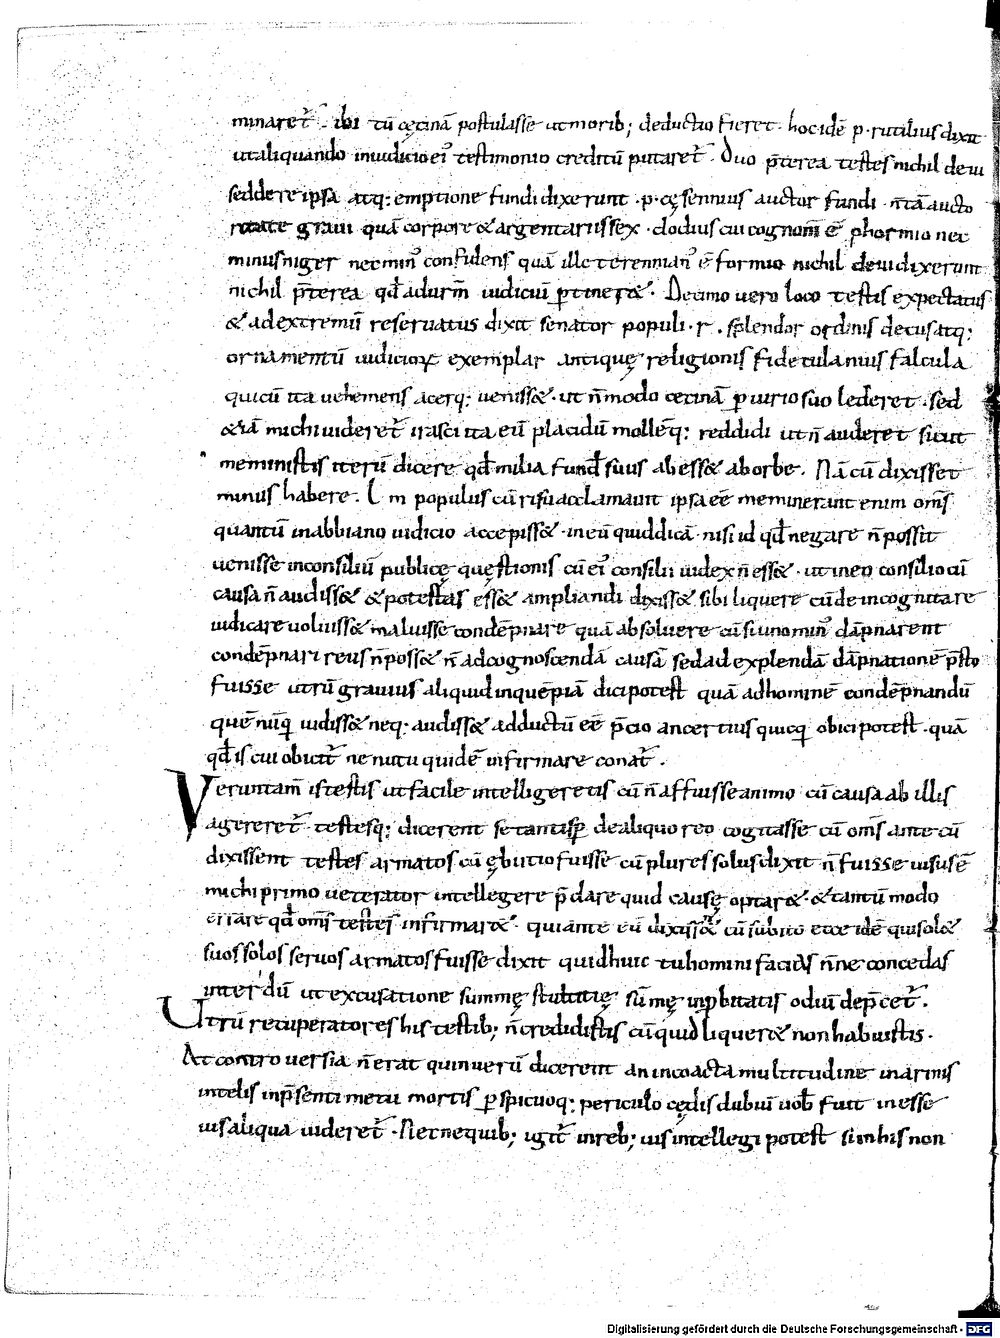 minaret᷑. ibi tū cęcinā postulasse ut morib; deductio fieret. hoc idē p. rutilius dixit
ut aliquando in iudicio ei᷒ testimonio creditū putaret᷑. Duo p̄terea testes nichil de ui
sed de re ipsa atq; emptione fundi dixerunt. p. cęsennius auctor fundi. n̄ tā aucto
ritate graui quā corpore & argentarius sex. clodius cui cognom̄ ē phormio nec
minus niger nec min᷒ confidens quā ille terentian᷒ ē formio nichil de ui dixerunt
nichil p̄terea qđ ad urm̄ iudiciū ꝑtiner&. Decimo uero loco testis expectatus
& ad extremū reseruatus dixit senator populi. r. splendor ordinis decus atq;
ornamentū iudicioꝝ exemplar antiquę religionis fidetulanius falcula
qui cū ita uehemens acerq; ueniss&. ut n̄ modo cecinā ꝑiurio suo lederet. sed
& iā michi uideret᷑ irasci ita eū placidū mollēq; reddidi ut n̄ auderet sicut
meministis iterū dicere qđ milia fund̄ suus abess& ab orbe. Nā cū dixisset
minus habere. L m populus cū risu acclamauit ipsa eē meminerant enim om̄s
quantū in abbiano iudicio accepiss&. in eū quid dicā. nisi id qđ negare n̄ possit
uenisse in consiliū publicę quęstionis cū ei᷒ consilii iudex n̄ ess&. ut in eo consilio cū
causā n̄ audiss& & potestas ess& ampliandi dixiss& sibi liquere cū de incognita re
iudicare uoluiss& maluisse condēpnare quā absoluere cū si uno min᷒ dāpnarent
condēpnari reus n̄ poss& n̄ ad cognoscendā causā sed ad explendā dāpnationē p̄sto
fuisse utrū grauius aliquid in quēpiā dici potest quā ad hominē condēpnandū
quē nūq̄ uidiss& neq; audiss& adductū eē p̄cio an certius quicq̄ obici potest. quā
qđ is cui obicit᷑ ne nutu quidē infirmare conat᷑.
Veruntam̄ is testis ut facile intelligeretis cū n̄ affuisse animo cū causa ab illis
agereret᷑ testesq; dicerent se tantisꝑ de aliquo reo cogitasse cū om̄s ante eū
dixissent testes armatos cū ębutio fuisse cū plures solus dixit n̄ fuisse uisus ē
michi primo ueterator intellegere p̄clare quid causę optar& & tantū modo
errare qđ om̄s testes infirmar& qui ante eū dixiss& cū subito ecce idē qui sol&
suos solos seruos armatos fuisse dixit quid huic tu homini facias n̄ne concedas
interdū ut excusatione summę stultitię sūmę inꝓbitatis odiū dep̄cet᷑.
Utrū recuperatores his testib; n̄ credidistis cū quid liquer& non habuistis.
At controuersia n̄ erat quin uerū dicerent an in coacta multitudine in armis
in telis in p̄senti metu mortis ꝑspicuoq; periculo cędis dubiū uob̄ fuit in esse
uis aliqua uideret᷑. Nec ne quib; igit᷑ in reb; uis intellegi potest si in his non